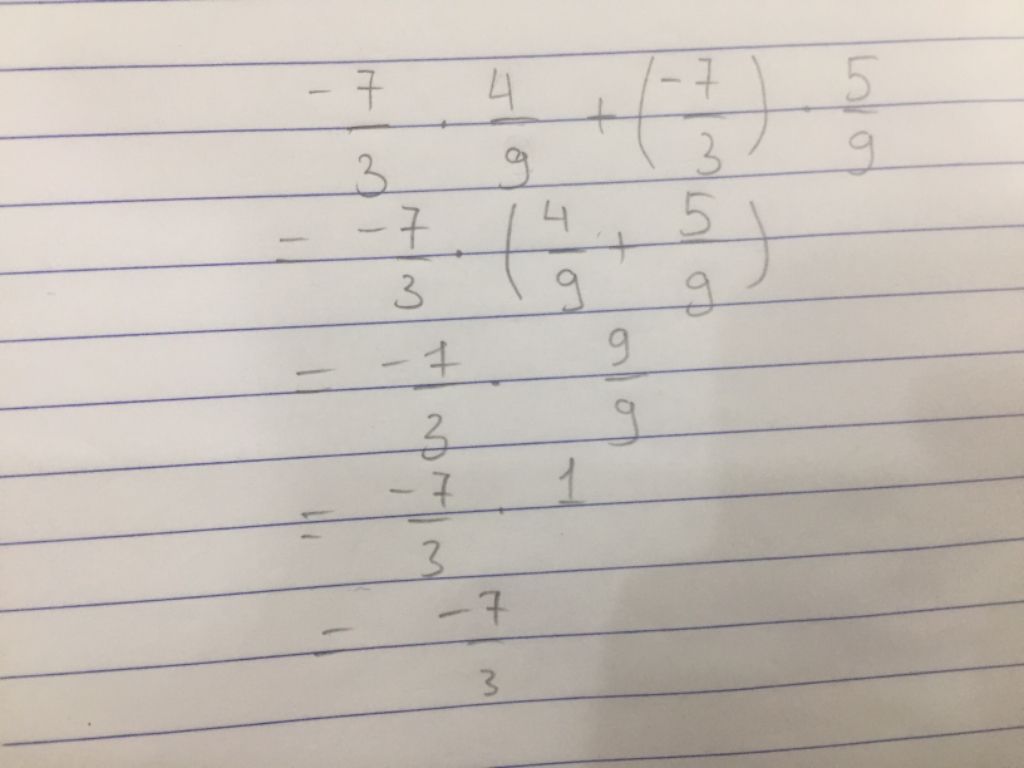 -7/3 · 4/9 + (-7/3) · 5/9
= -7/3 · (4/9 + 5/9)
= -7/3 · 9/9
= -7/3 · 1
= -7/3